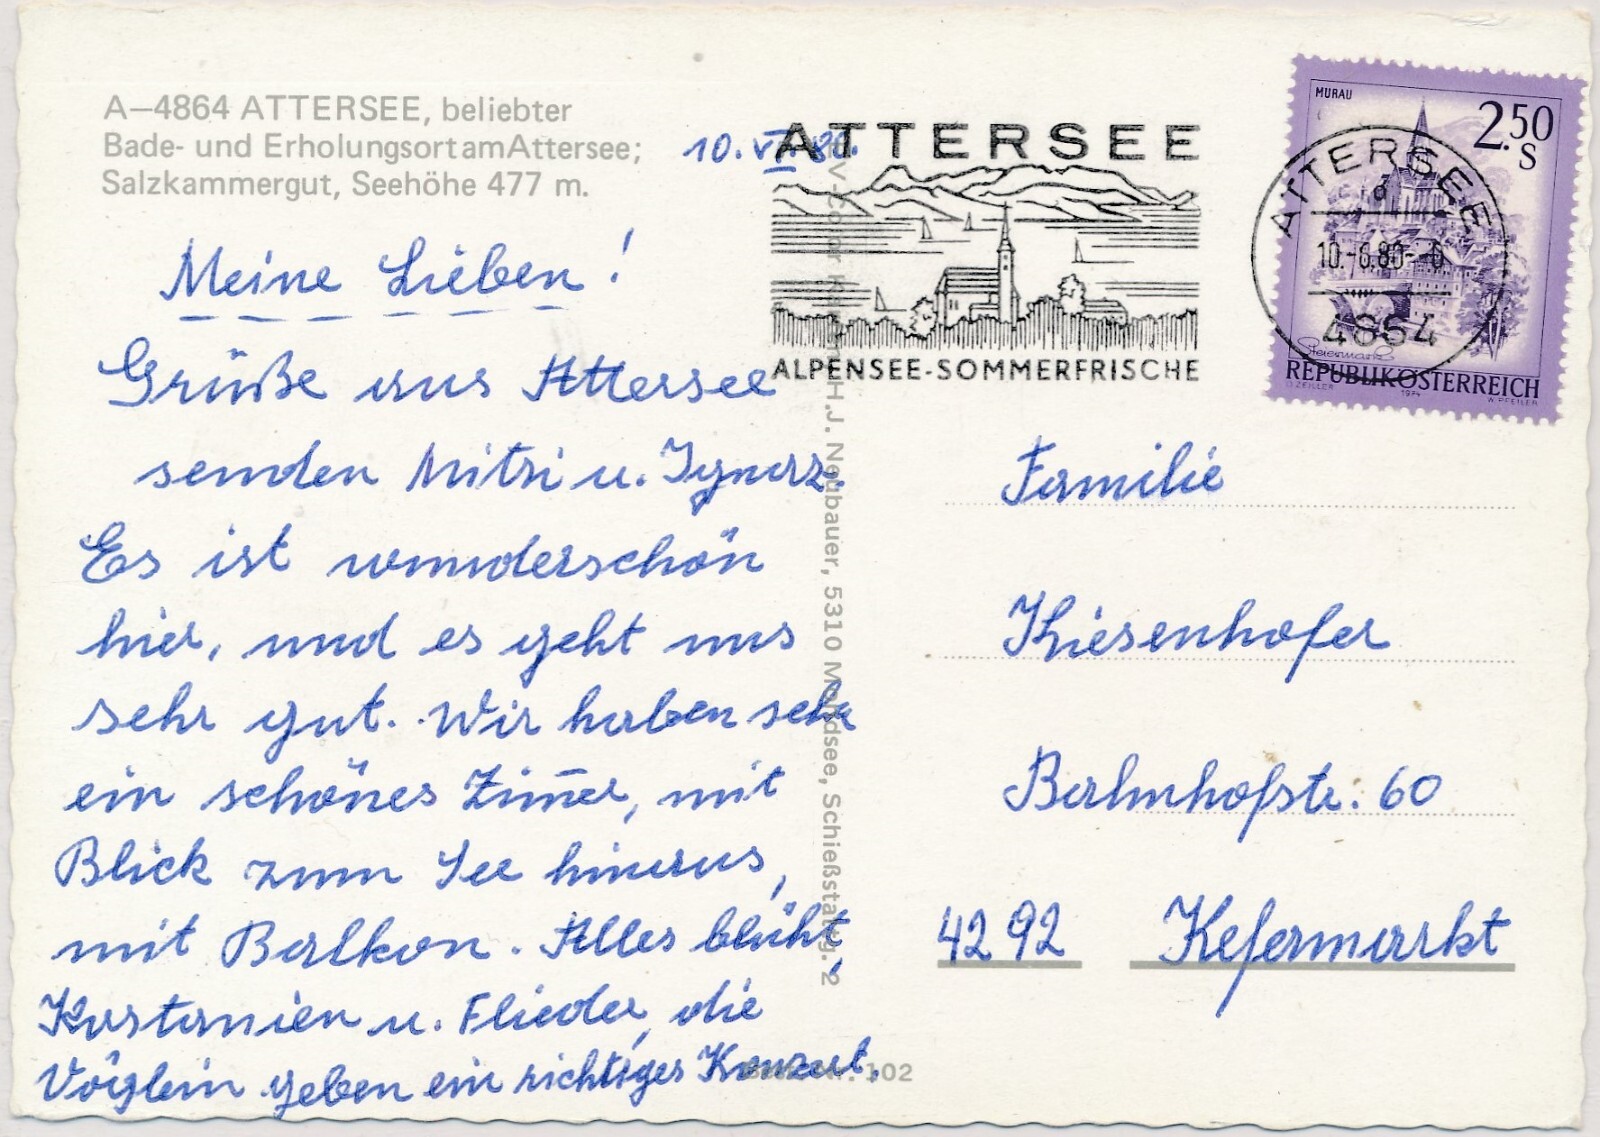 A—4864 ATTERSEE, beliebter
Bade- und Erholungsort am Attersee;
Salzkammergut, Seehöhe 477 m.
10. VI. 80.
Meine Lieben!
Grüße aus Attersee
senden Mitzi u. Ignaz.
Es ist wunderschön
hier, und es geht uns
sehr gut. Wir haben sehr
ein schönes Zim̄er, mit
Blick zum See hinaus,
mit Balkon. Alles blüht,
Kastanien u. Flieder, die
Vöglein geben ein richtiges Konzert.
ATTERSEE
ALPENSEE-SOMMERFRISCHE
MURAU
2.50
S
Steiermark
REPUBLIK ÖSTERREICH
O. ZEILLER 1974 W. PFEILER
ATTERSEE
10.-6.80-
4864
H.J. Neubauer, 5310 Mondsee, Schießstattg. 2
Familie
Kiesenhofer
Bahnhofstr. 60
4292 Kefermarkt
102